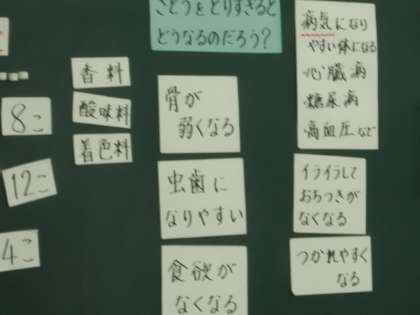 さとうをとりすぎると
どうなるのだろう?
8こ
12こ
4こ
香料
酸味料
着色料
骨が
弱くなる
虫歯に
なりやすい
食欲が
なくなる
病気になり
やすい体になる
・心臓病
・糖尿病
・高血圧など
イライラして
おちつきが
なくなる
つかれやすく
なる